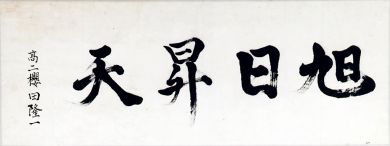 旭日昇天
高二櫻田隆一